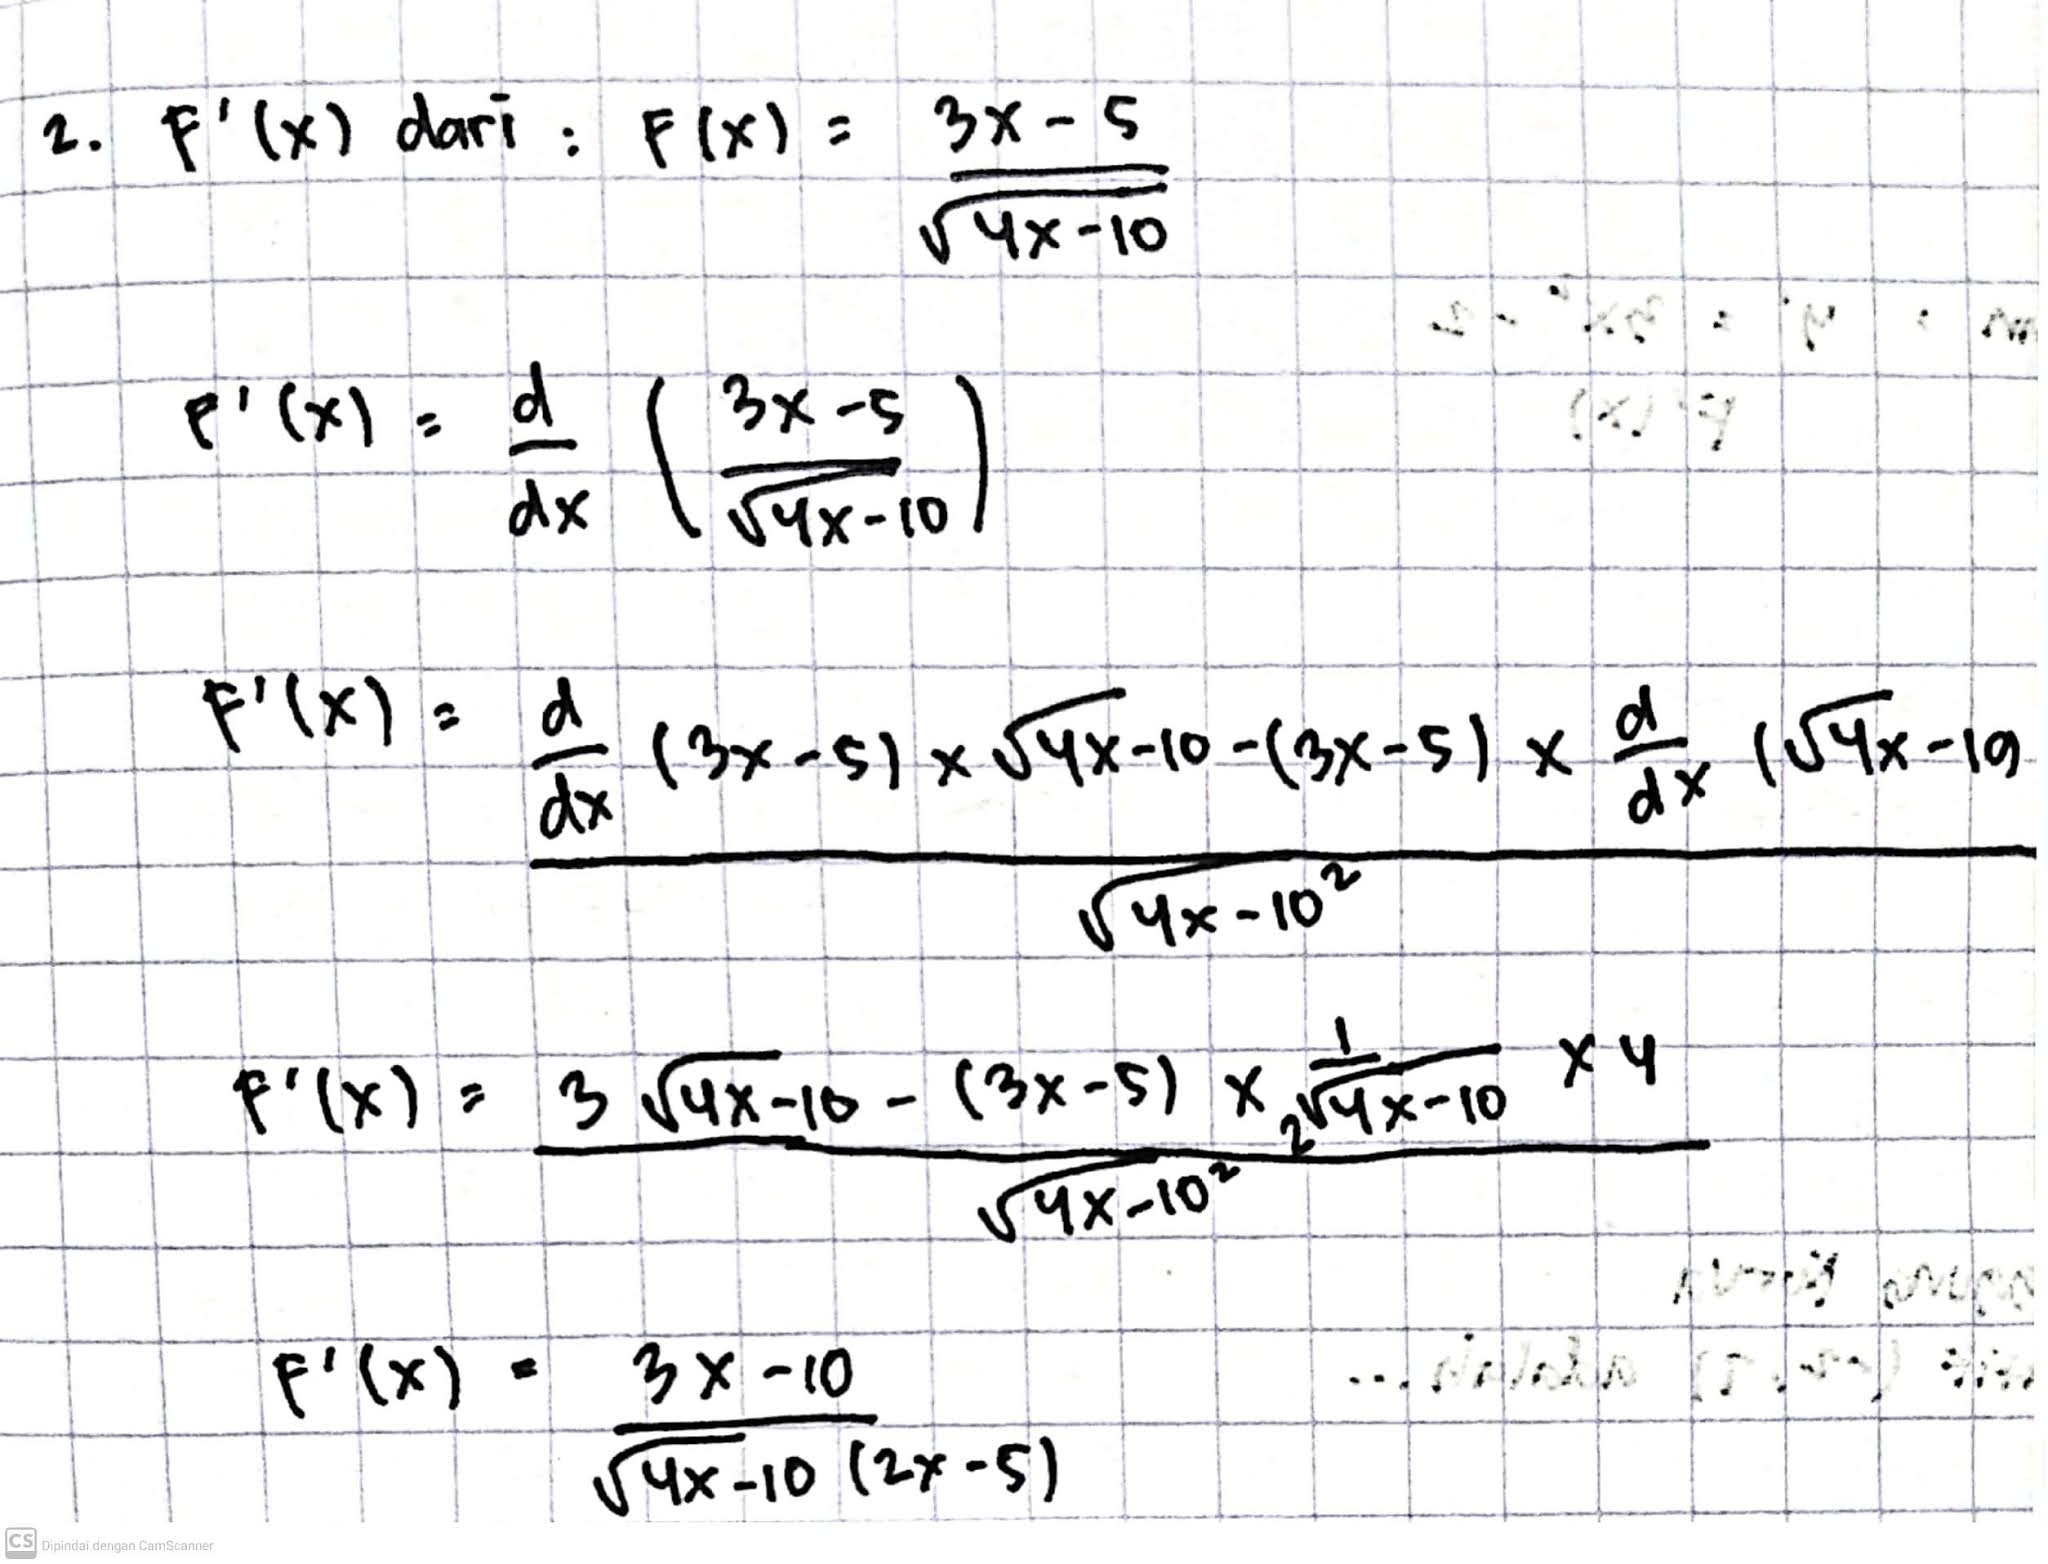 2. F'(x) dari : F(x) = 3x - 5
√4x-10
F'(x) = d/dx (3x-5 / √4x-10)
F'(x) = d/dx (3x-5) x √4x-10 -(3x-5) x d/dx (√4x-10
√4x-10²
F'(x) = 3 √4x-10 - (3x-5) x 1/2√4x-10 x 4
√4x-10²
F'(x) = 3x-10
√4x-10 (2x-5)
CS Dipindai dengan CamScanner